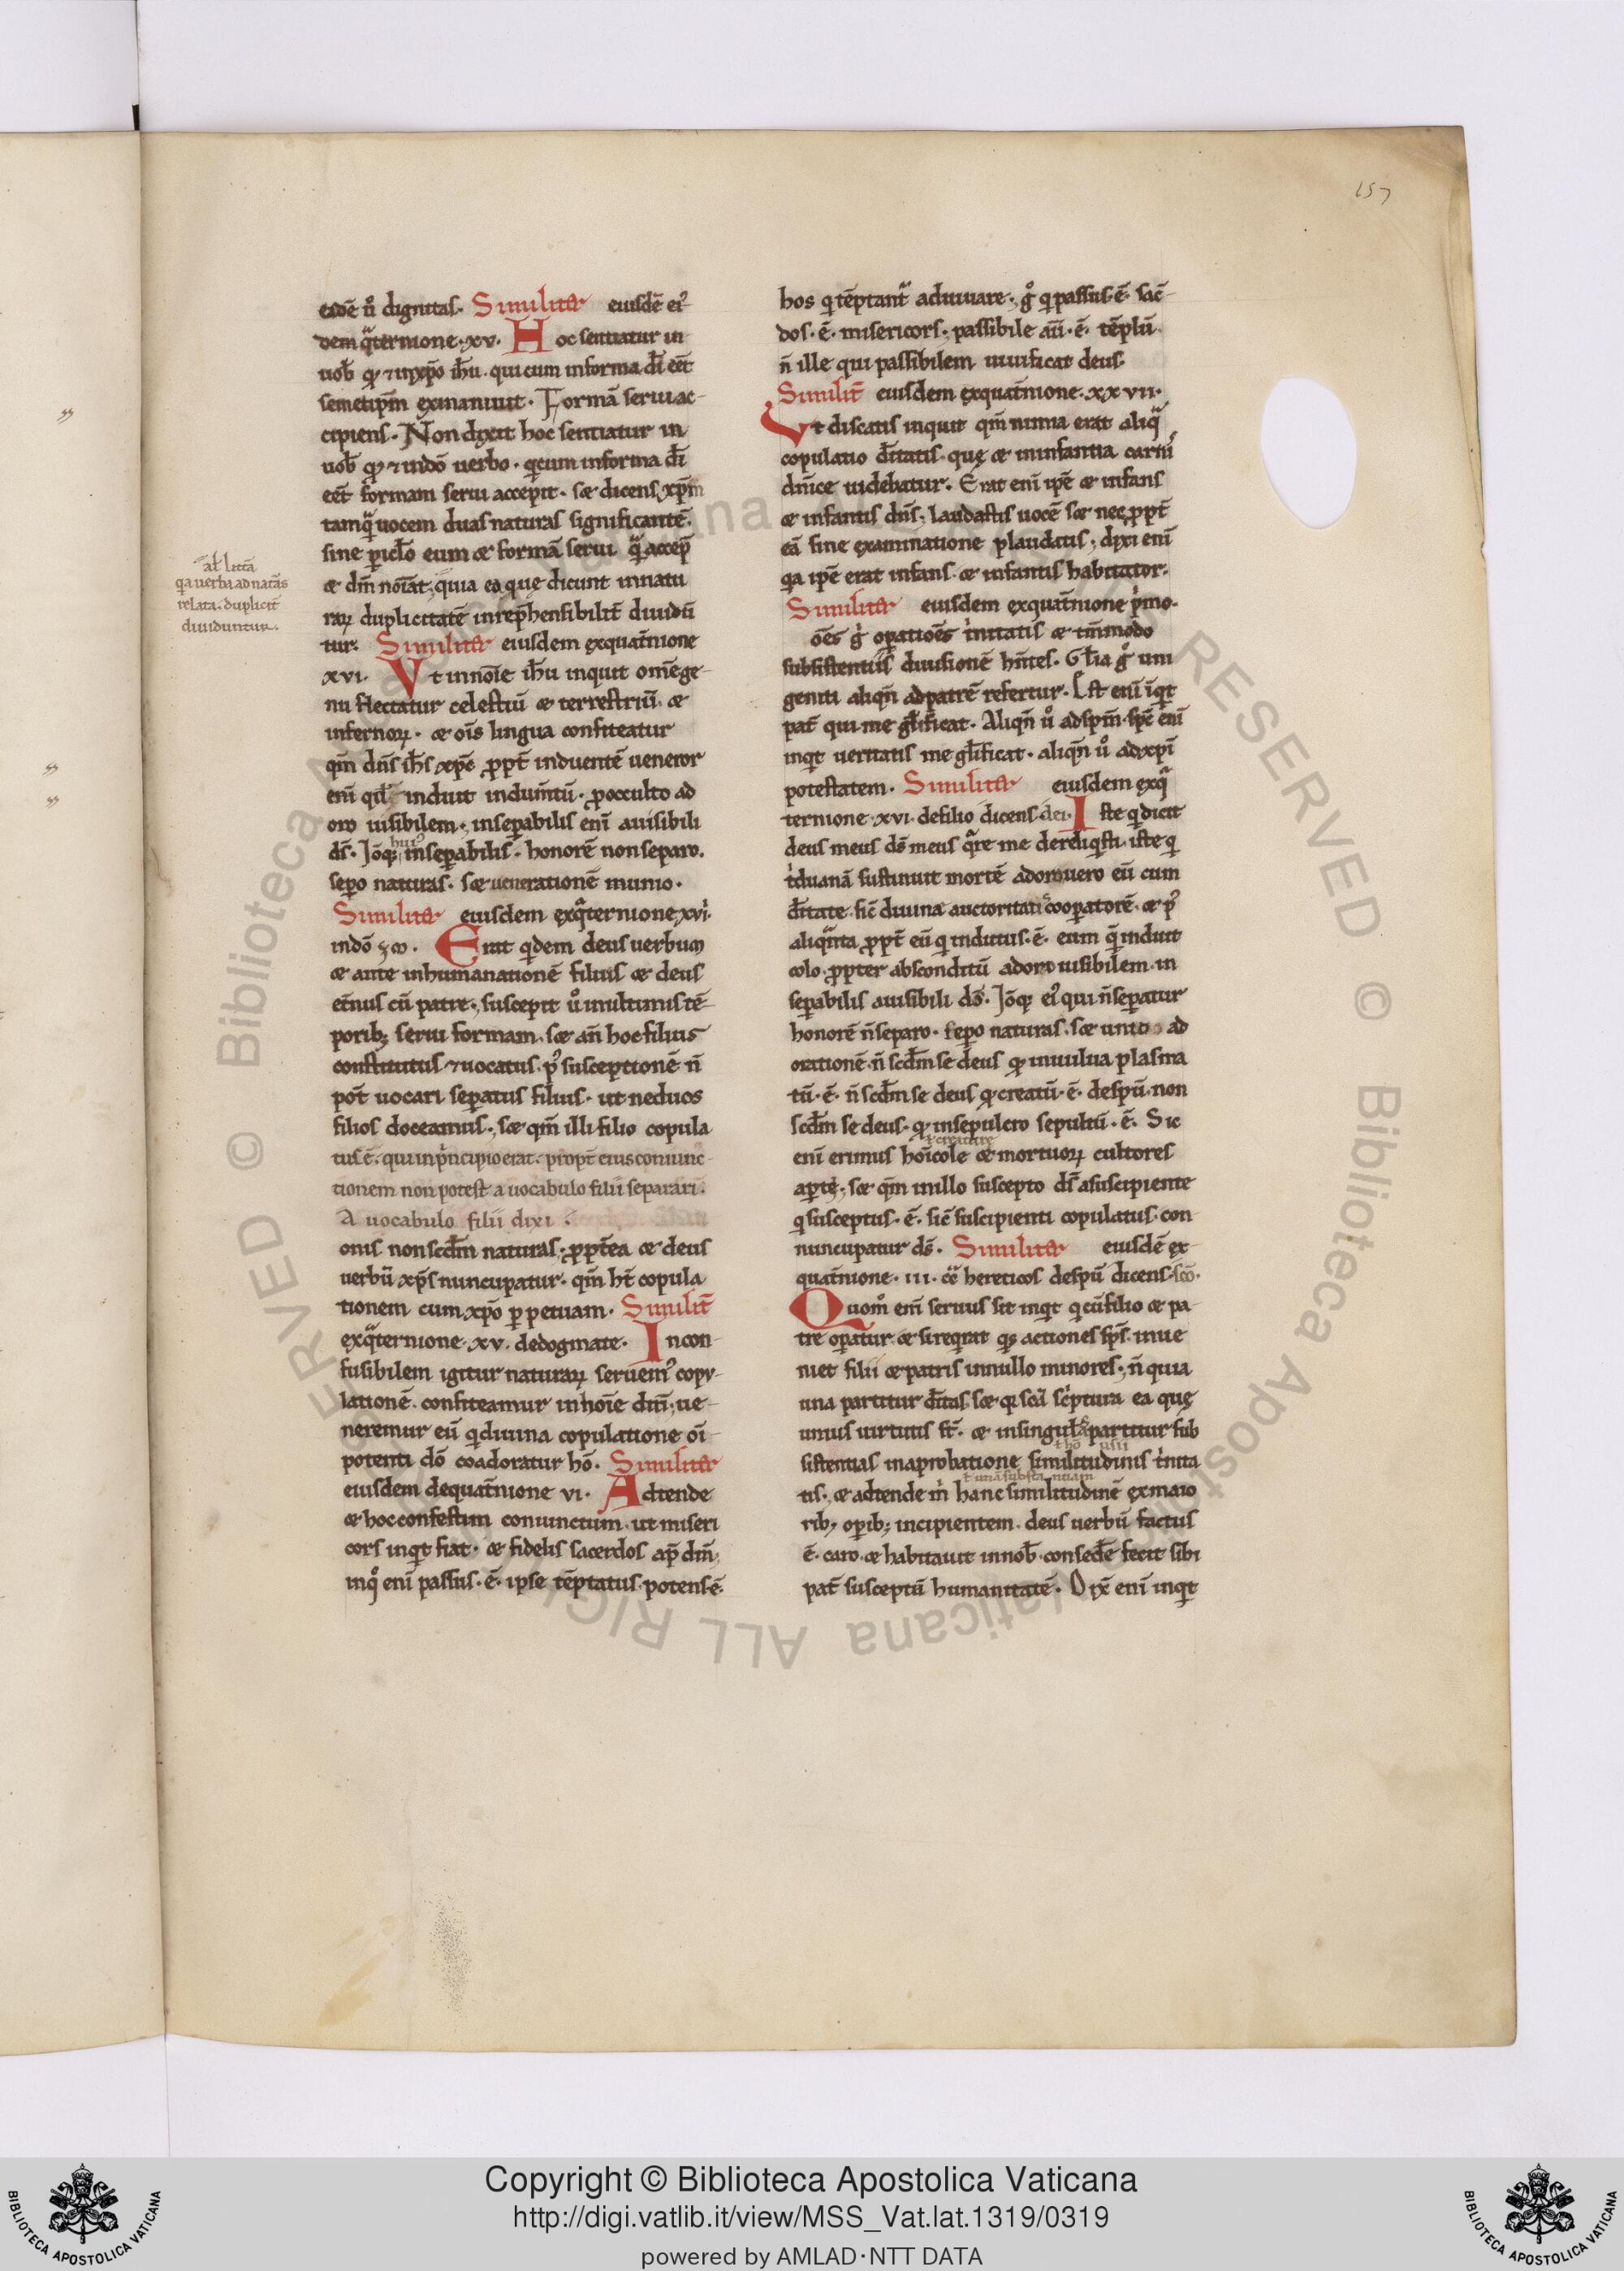 157
eadē ů dignitas. Similiter eiusdē ei'
dem qͣternione .xv. Hoc sentiatur in
uob̄ qͥ ⁊ in xp̄o ih̄u. qui cum in forma dī eēt
semetip̄m exinaniuit. Formā serui ac-
cipiens. Non dixit hoc sentiatur in
uob̄ qͥ ⁊ in dō uerbo. qͥ cum in forma dī
eēt formam serui accepit. sꝫ dicens xp̄m
tamqͣ uocem duas naturas significantē.
sine pericl̄o eum æ formā serui qͣ accep̄
æ dm̄ noīat; quia ea quę dicunt in natu
raꝝ duplicitatē inrep̄hensibilit̄ diuidū
al̄ litt̄a
qͥa uerba ad nat̄as
relata. duplicit̄
diuiduntur.
tur. Similiter eiusdem ex quat̄nione
xvi. Vt in nōīe ih̄u inquit om̄e ge-
nu flectatur celestiū æ terrestriū. æ
infernoꝝ. æ oīs lingua confiteatur
qm̄ dn̄s ih̄s xp̄c ꝓpt̄ induentē ueneror
eni qd̄ induit indum̄tū. ꝓ occulto ad
oro uisibilem. insepabilis enī a uisibili
ds̄. Iōqꝫ insepabilis. honorē non separo.
sepo naturas. sꝫ uenerationē munio.
Similiter eiusdem ex qͣternione xvi.
Erat qͥdem deus uerbum
æ ante inhumanationē filius æ deus
et̄nus cū patre. suscepit ů in ultimis tē-
poribꝫ serui formam. sꝫ an̄ hoc filius
constitutus ⁊ uocatus. p' susceptionē n̄
pot̄ uocari sepatus filius. ut ne duos
filios doceamus. sꝫ qm̄ illi filio copula
tus ē. qui in pͥncipio erat. propt̄ eius coniunc-
tionem non potest a uocabulo filii separari.
A uocabulo filii dixi.
onis non scd̄m naturas; ꝓpt̄ea æ deus
uerbū xp̄s nuncupatur. qm̄ ht̄ copula
tionem cum xp̄o ꝑpetuam. Similit̄
ex qͣternione .xv. de dogmate. Incon-
fusibilem igitur naturaꝝ seruem' copu-
lationē. confiteamur in hoīe dm̄; ue-
neremur eū qͥ diuina copulatione oī-
potenti dō coadoratur hō. Similiter
eiusdem de quat̄nione vi. Adtende
æ hoc confestim coniunctum. ut miseri
cors inqͥt fiat. æ fidelis sacerdos ap̄ dm̄;
in qͦ enī passus. ē. ipse tēptatus. potens ē.
hos qͥ tēptant̄ adiuuare. gͦ qͥ passus. ē. sac̄-
dos. ē. misericors. passibile aū. ē. tēplū.
n̄ ille qui passibilem uiuificat deus.
Similit̄ eiusdem ex quat̄nione .xxvii.
Vt discatis inquit qm̄ nimia erat aliqͣ
copulatio d̄itatis. quę æ in infantia carni'
dn̄ice uidebatur. Erat enī ip̄e æ infans
æ infantis dn̄s. laudastis uocē sꝫ nec ꝓpt̄
eā sine examinatione plaudatis; dixi enī
qͥa ip̄e erat infans. æ infantis habitator.
Similiter eiusdem ex quat̄nione pͥmo.
oēs gͥ opatioēs tͥnitatis æ tm̄modo
subsistentiis diuisionē hn̄tes. Gl̄ia gͦ uni
geniti aliqn̄ ad patrē refertur. Est enī inqͥt
pat̄ qui me gl̄ificat. Aliqn̄ ů ad sp̄m. sp̄c enī
inqͥt ueritatis me gl̄ificat. aliqn̄ ů ad xp̄i
potestatem. Similiter eiusdem ex qͣ
ternione .xvi. de filio dicens dei. Iste qͥ dicit
deus meus ds̄ meus qͣre me dereliqͥsti. iste qͥ
tͥduanā sustinuit mortē adoro uero eū cum
d̄itate. sic̄ diuina auctoritati cooperatorē. æ p'
aliqͣnta ꝓpt̄ eū qͥ indutus. ē. eum qͥ induit
colo. ꝓpter absconditū adoro uisibilem. in
sepabilis a uisibili ds̄. Iōqꝫ ei' qui n̄ sepatur
honorē n̄ separo. sepo naturas. sꝫ unio ad
orationē. n̄ scd̄m se deus qͥ in uulua plasma
tū. ē. n̄ scd̄m se deus qͥ creatū. ē. de sp̄u. non
scd̄m se deus. qͥ in sepulcro sepultū. ē. Sic
ł creature
enī erimus hoīcole æ mortuoꝝ cultores
aperte. sꝫ qm̄ in illo suscepto ds̄ a suscipiente
qͥ susceptus. ē. sic̄ suscipienti copulatus. con
nuncupatur ds̄. Similiter eiusdē ex
quat̄nione. iii. cͣ hereticos de sp̄u dicens. scō.
Quom̊ enī seruus sit inqͥt qͥ cū filio æ pa-
tre opatur. æ si reqͥrat qͥs actiones sp̄s. inue
niet filii æ patris in nullo minores. n̄ quia
una partitur d̄itas. sꝫ qͥ scā scͥptura ea quę
unius uirtutis st̄. æ in singulas partitur sub
sistentias in aprobatione similitudinis tͥnita
ł unā substantiam
tis. æ adtende m̄ hanc similitudinē ex maio
ribꝫ opibꝫ incipientem. deus uerbū factus
ē. caro. æ habitauit in nob̄. consedē fecit sibi
pat̄ susceptū humanitatē. Dix̄ enī inqͥt
Copyright © Biblioteca Apostolica Vaticana
http://digi.vatlib.it/view/MSS_Vat.lat.1319/0319
powered by AMLAD·NTT DATA
BIBLIOTECA APOSTOLICA VATICANA
BIBLIOTECA APOSTOLICA VATICANA
© Biblioteca Apostolica Vaticana ALL RIGHTS RESERVED
© Biblioteca Apostolica Vaticana ALL RIGHTS RESERVED